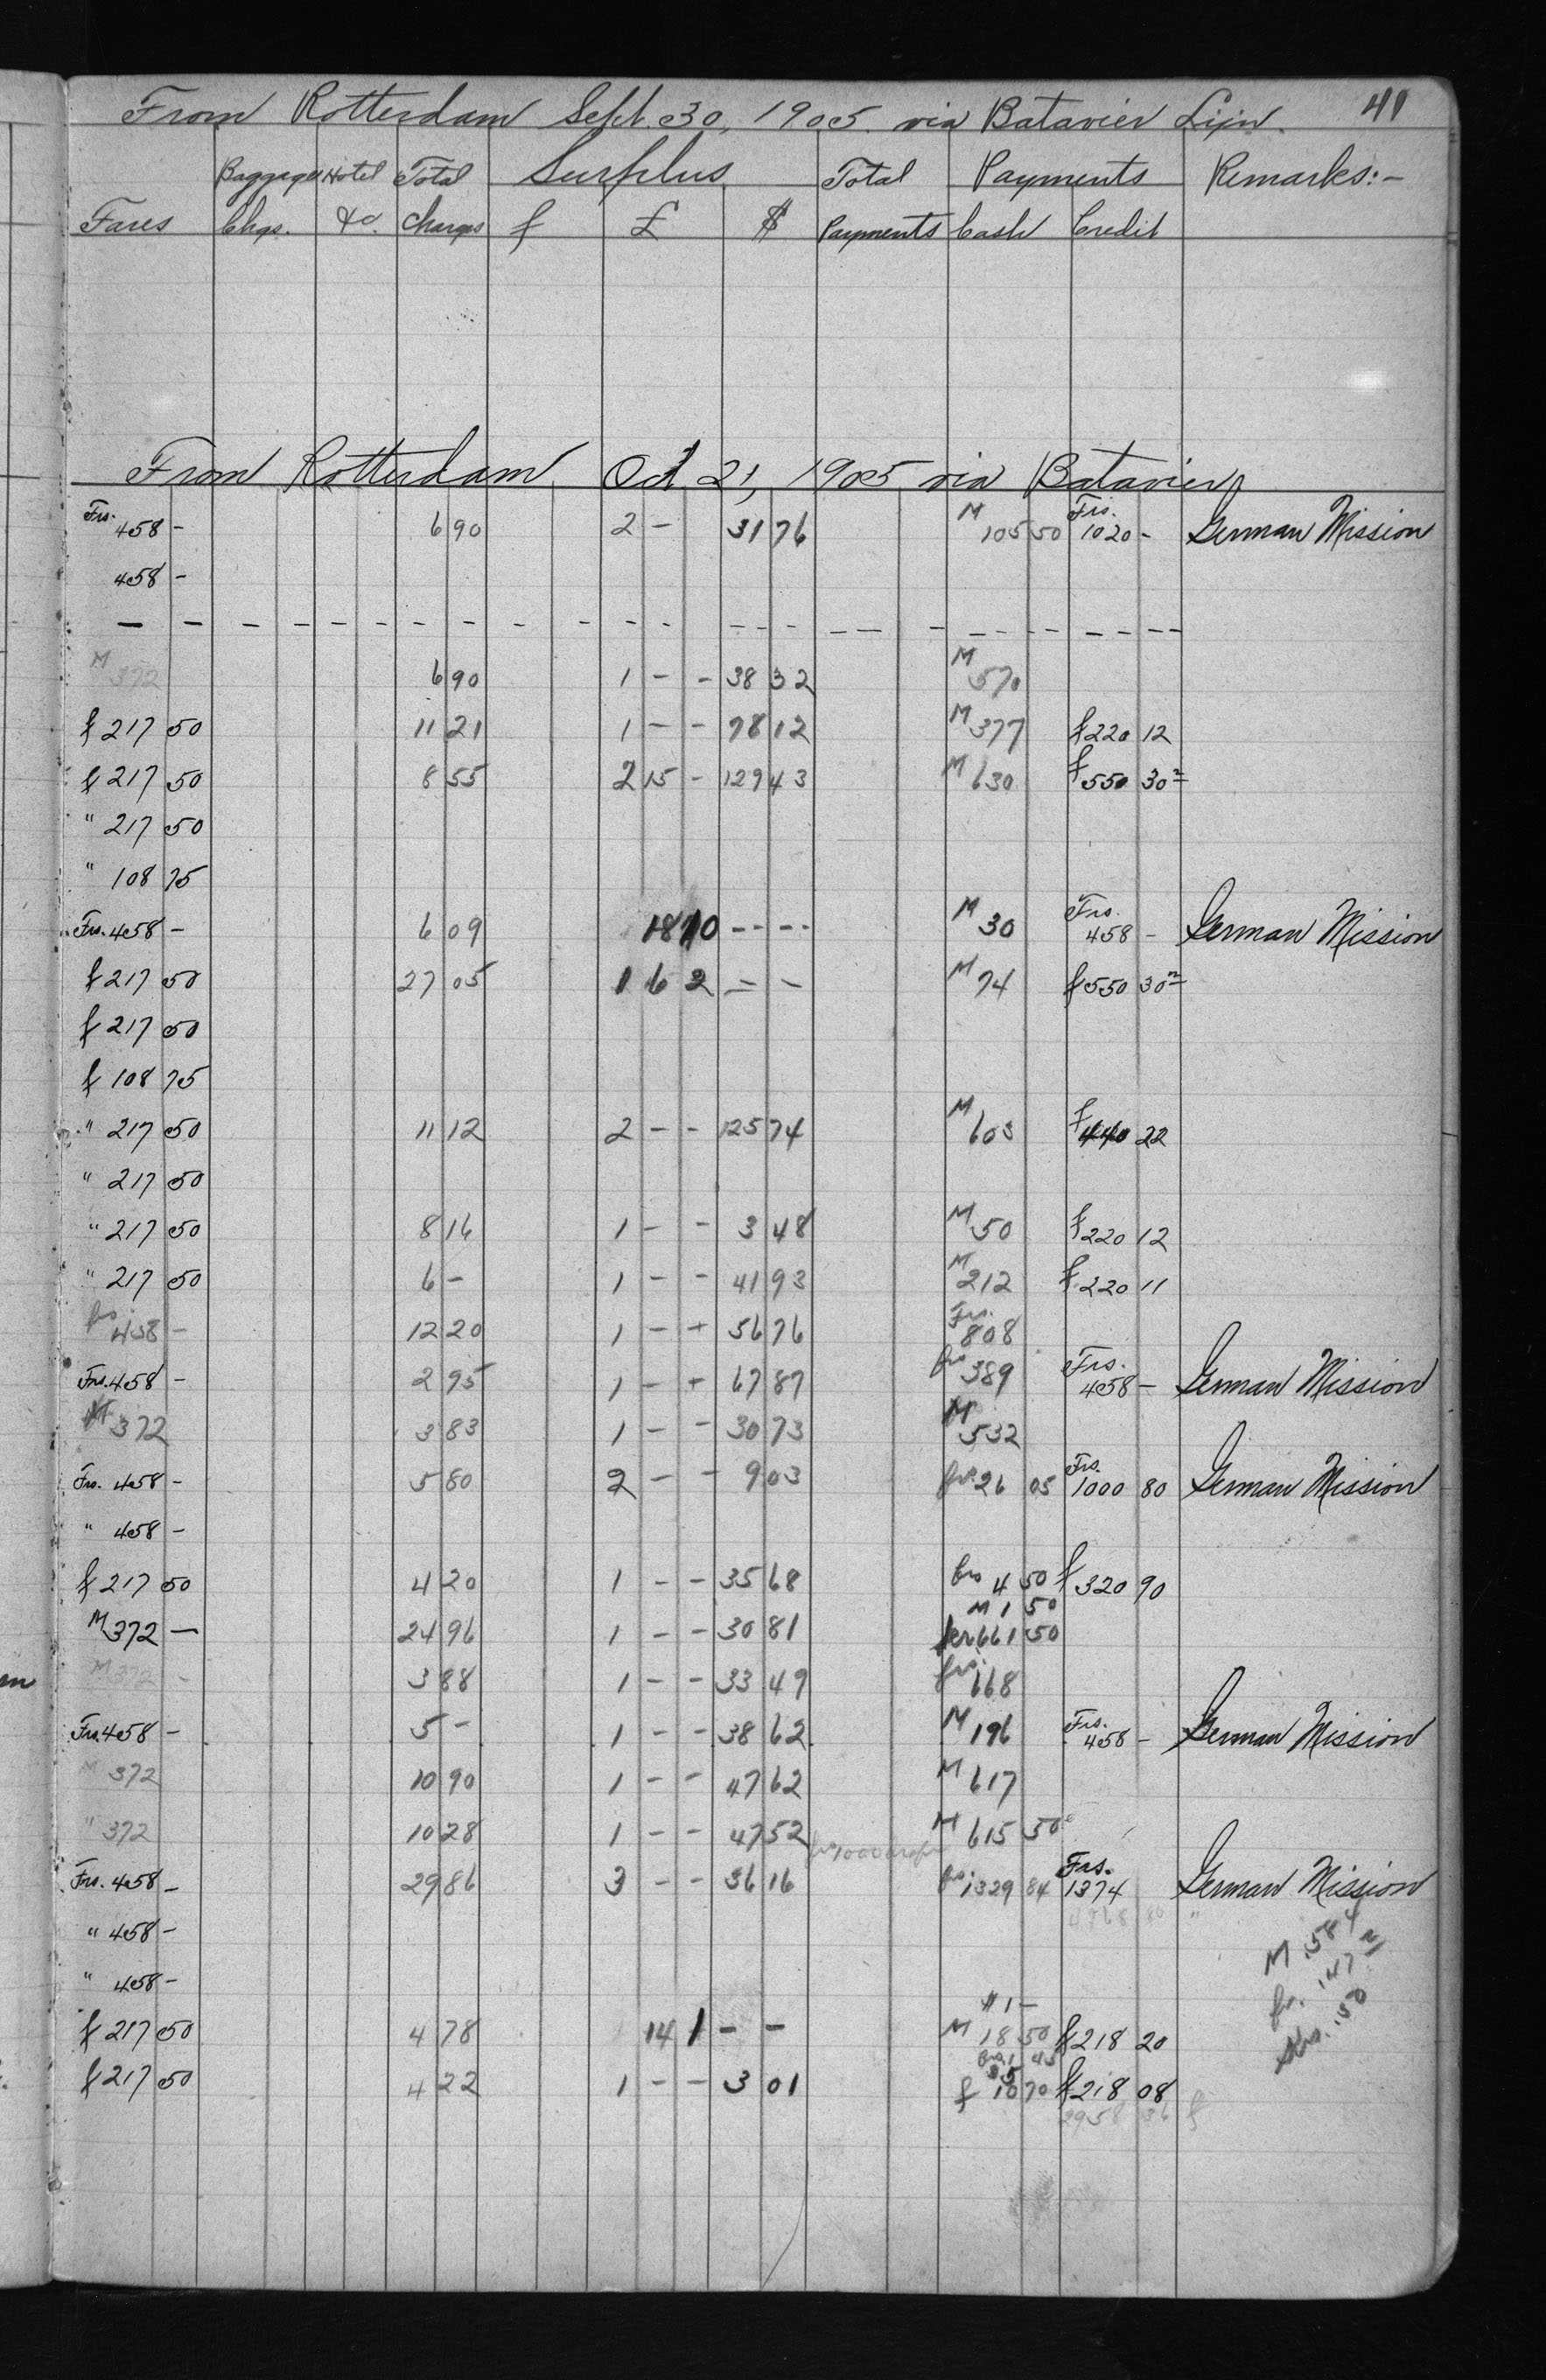 From Rotterdam Sept. 30, 1905. via Batavier Lijn. 41
Baggage Hotel Total Surplus Total Payments Remarks:-
Fares Chgs. &c. Charges f £ $ Payments Cash Credit
From Rotterdam Oct 21, 1905 via Batavier
Frs. 458 - 6 90 2 - 31 76 M 105 50 Frs. 1020 - German Mission
458 -
- - - - - - - - - - - - - - - - - - - - - - - - - -
M 372 6 90 1 - - 38 32 M 570
f 217 50 11 21 1 - - 78 12 M 377 f 220 12
f 217 50 8 55 2 15 - 129 43 M 630 f 550 30
" 217 50
" 108 75
Frs. 458 - 6 09 - - - - M 30 Frs. 458 - German Mission
f 217 50 27 05 1 6 2 - - M 74 f 550 30
f 217 50
f 108 75
" 217 50 11 12 2 - - 125 74 M 603 f 440 22
" 217 50
" 217 50 8 16 1 - - 3 48 M 50 f 220 12
" 217 50 6 - 1 - - 41 93 M 212 f 220 11
frs 458 - 12 20 1 - - 56 76 Frs. 808
Frs. 458 - 2 95 1 - - 67 87 frs 389 Frs. 458 - German Mission
M 372 3 83 1 - - 30 73 M 532
Frs. 458 - 5 80 2 - - 9 03 frs. 26 05 Frs. 1000 80 German Mission
" 458 -
f 217 50 4 20 1 - - 35 68 frs 4 50 f 320 90
M 1 50
M 372 - 24 96 1 - - 30 81 661 50
M 372 - 3 88 1 - - 33 49 frs. 668
Frs. 458 - 5 - 1 - - 38 62 M 196 Frs. 458 - German Mission
M 372 10 90 1 - - 47 62 M 617
" 372 10 28 1 - - 47 52 M 615 50
Frs. 458 - 29 86 3 - - 36 16 frs. 1329 84 Frs. 1374 German Mission
4768 80 "
" 458 - M 584
" 458 - fr. 147
$ 1 -
f 217 50 4 78 14 1 - - M 18 50 f 218 20
1 45
f 217 50 4 22 1 - - 3 01 f 70 f 218 08
2958 36 f